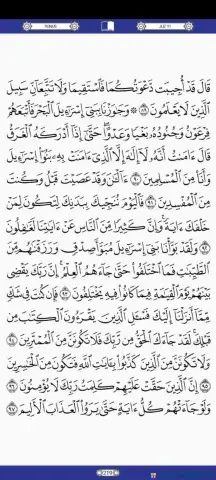 YUNUS JUZ 11
قَالَ قَدْ أُجِيبَت دَّعْوَتُكُمَا فَٱسْتَقِيمَا وَلَا تَتَّبِعَآنِّ سَبِيلَ
ٱلَّذِينَ لَا يَعْلَمُونَ ٨٩ ۞ وَجَٰوَزْنَا بِبَنِىٓ إِسْرَٰٓءِيلَ ٱلْبَحْرَ فَأَتْبَعَهُمْ
فِرْعَوْنُ وَجُنُودُهُۥ بَغْيًا وَعَدْوًا حَتَّىٰٓ إِذَآ أَدْرَكَهُ ٱلْغَرَقُ
قَالَ ءَامَنتُ أَنَّهُۥ لَآ إِلَٰهَ إِلَّا ٱلَّذِىٓ ءَامَنَتْ بِهِۦ بَنُوٓا۟ إِسْرَٰٓءِيلَ
وَأَنَا۠ مِنَ ٱلْمُسْلِمِينَ ٩٠ ءَآلْـَٰٔنَ وَقَدْ عَصَيْتَ قَبْلُ وَكُنتَ
مِنَ ٱلْمُفْسِدِينَ ٩١ فَٱلْيَوْمَ نُنَجِّيكَ بِبَدَنِكَ لِتَكُونَ لِمَنْ
خَلْفَكَ ءَايَةً وَإِنَّ كَثِيرًا مِّنَ ٱلنَّاسِ عَنْ ءَايَٰتِنَا لَغَٰفِلُونَ
٩٢ وَلَقَدْ بَوَّأْنَا بَنِىٓ إِسْرَٰٓءِيلَ مُبَوَّأَ صِدْقٍ وَرَزَقْنَٰهُم مِّنَ
ٱلطَّيِّبَٰتِ فَمَا ٱخْتَلَفُوا۟ حَتَّىٰ جَآءَهُمُ ٱلْعِلْمُ إِنَّ رَبَّكَ يَقْضِى
بَيْنَهُمْ يَوْمَ ٱلْقِيَٰمَةِ فِيمَا كَانُوا۟ فِيهِ يَخْتَلِفُونَ ٩٣ فَإِن كُنتَ فِى شَكٍّ
مِّمَّآ أَنزَلْنَآ إِلَيْكَ فَسْـَٔلِ ٱلَّذِينَ يَقْرَءُونَ ٱلْكِتَٰبَ مِن
قَبْلِكَ لَقَدْ جَآءَكَ ٱلْحَقُّ مِن رَّبِّكَ فَلَا تَكُونَنَّ مِنَ ٱلْمُمْتَرِينَ ٩٤
وَلَا تَكُونَنَّ مِنَ ٱلَّذِينَ كَذَّبُوا۟ بِـَٔايَٰتِ ٱللَّهِ فَتَكُونَ مِنَ ٱلْخَٰسِرِينَ
٩٥ إِنَّ ٱلَّذِينَ حَقَّتْ عَلَيْهِمْ كَلِمَتُ رَبِّكَ لَا يُؤْمِنُونَ ٩٦
وَلَوْ جَآءَتْهُمْ كُلُّ ءَايَةٍ حَتَّىٰ يَرَوُا۟ ٱلْعَذَابَ ٱلْأَلِيمَ ٩٧
219